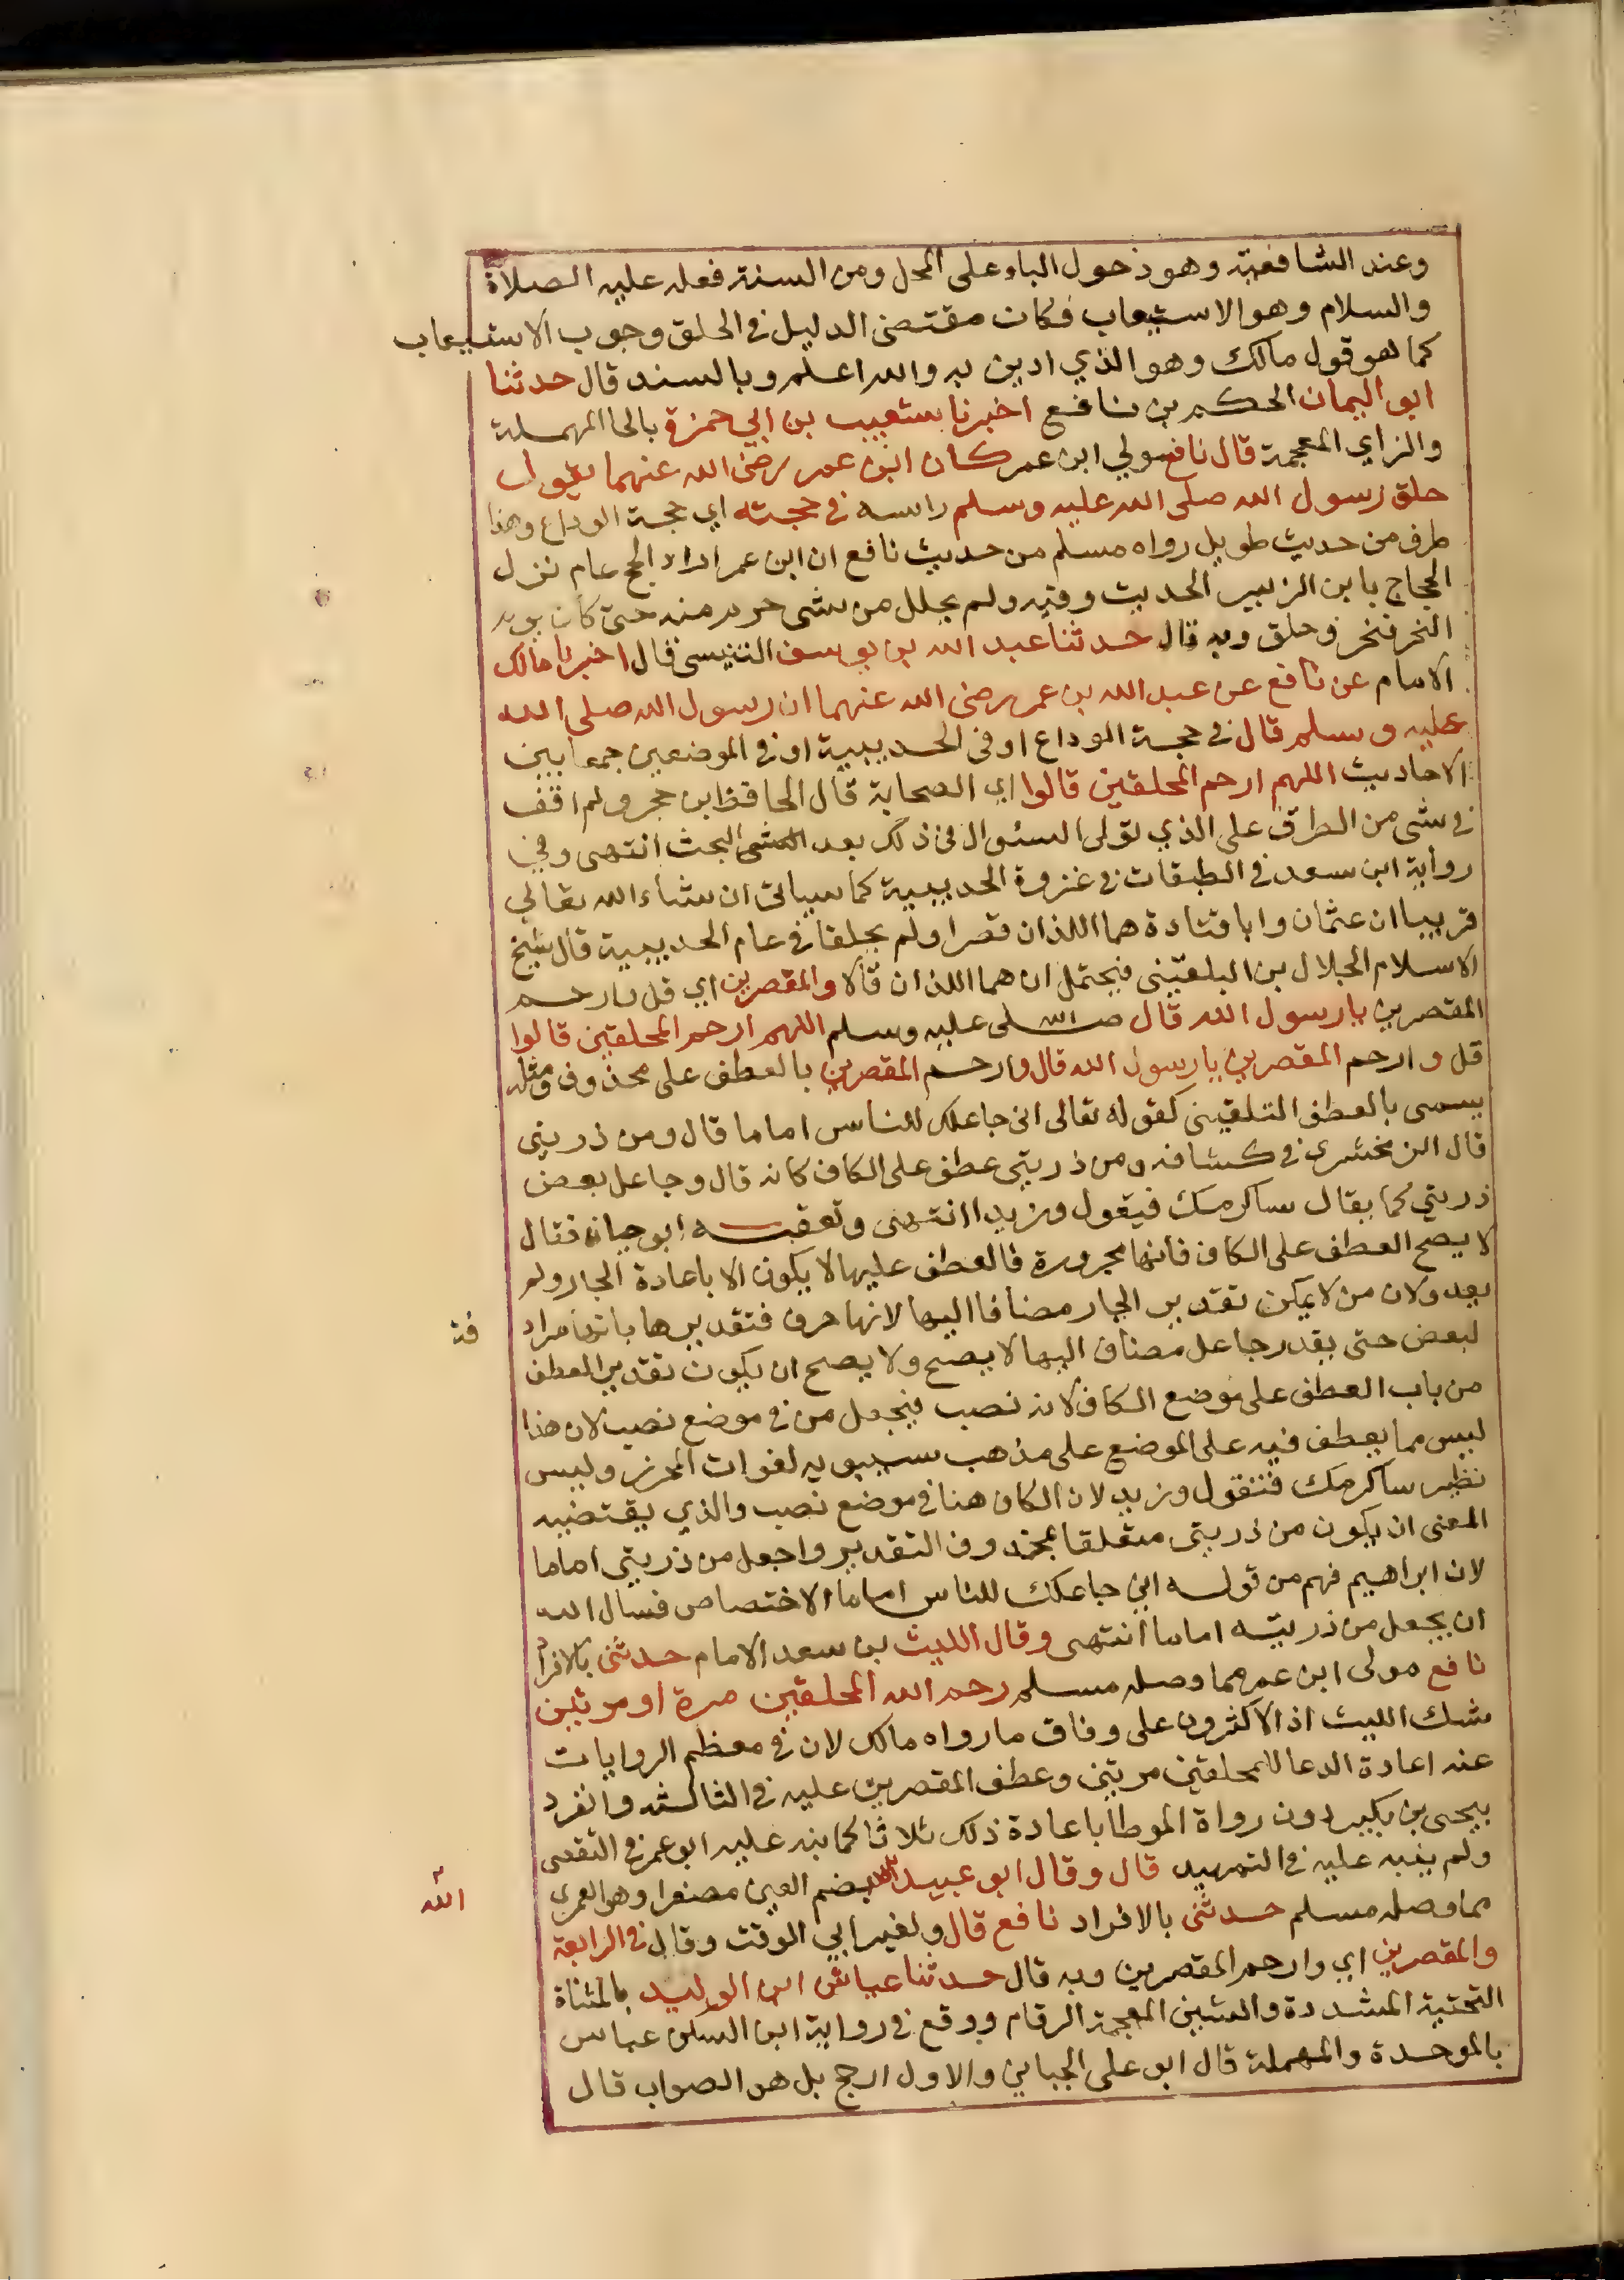 وعند الشافعية وهو دخول الباء على المحل ومن السنة فعله عليه الصلاة
والسلام وهو الاستيعاب فكان مقتضى الدليل في الحلق وجوب الاستيعاب
كما هو قول مالك وهو الذي ادين به والله اعلم وبالسند قال حدثنا
ابو اليمان الحكم بن نافع اخبرنا شعيب بن ابي حمزة بالحا المهملة
والزاي المعجمة قال نافع مولي ابن عمر كان ابن عمر رضى الله عنهما يقول
حلق رسول الله صلى الله عليه وسلم راسه في حجته اي حجة الوداع وهذا
طرف من حديث طويل رواه مسلم من حديث نافع ان ابن عمر اراد الحج عام نزل
الحجاج بابن الزبير الحديث وفيه ولم يحلل من شى حرم منه حتى كان يوم
النحر فنحر وحلق وبه قال حدثنا عبد الله بن يوسف التنيسى قال اخبرنا مالك
الامام عن نافع عن عبد الله بن عمر رضى الله عنهما ان رسول الله صلى الله
عليه وسلم قال في حجة الوداع او فى الحديبية او في الموضعين جمعا بين
الاحاديث اللهم ارحم المحلقين قالوا اي الصحابة قال الحافظ ابن حجر ولم اقف
في شى من الطرق على الذي تولى السئوال فى ذلك بعد البحث انتهى وفي
رواية ابن سعد في الطبقات في غزوة الحديبية كما سياتى ان شاء الله تعالي
قريبا ان عثمان وابا قتادة هما اللذان قصرا ولم يحلقا في عام الحديبية قال شيخ
الاسلام الجلال بن البلقيني فيحتمل ان هما اللذان قالا والمقصرين اي قل وارحم
المقصرين يا رسول الله قال صلى الله عليه وسلم اللهم ارحم المحلقين قالوا
قل وارحم المقصرين يا رسول الله قال وارحم المقصرين بالعطف على محذوف ومثله
يسمى بالعطف التلقينى كقوله تعالى انى جاعلك للناس اماما قال ومن ذريتي
قال الزمخشرى في كشافه ومن ذريتي عطف على الكاف كانه قال وجاعل بعض
ذريتي كما يقال ساكرمك فيقول وزيدا انتهى وتعقبه ابو حيان فقال
لا يصح العطف على الكاف فانها مجرورة فالعطف عليها لا يكون الا باعادة الجار ولم
يعد ولان من لا يمكن تقدير الجار مضافا اليها لانها حرف فتقديرها بانها مراد فة
لبعض حتى يقدر جاعل مضاف اليها لا يصح ولا يصح ان يكون تقدير العطف
من باب العطف على موضع الكاف لانه نصب فيجعل من في موضع نصب لان هذا
ليس مما يعطف فيه على الموضع على مذهب سيبويه لفوات المحرز وليس
نظير ساكرمك فتقول وزيد لان الكاف هنا في موضع نصب والذي يقتضيه
المعنى ان يكون من ذريتى متعلقا بمحذوف التقدير واجعل من ذريتي اماما
لان ابراهيم فهم من قوله اني جاعلك للناس اماما الاختصاص فسال الله
ان يجعل من ذريته اماما انتهى وقال الليث بن سعد الامام حدثنى بالافراد
نافع مولى ابن عمر مما وصله مسلم رحم الله المحلقين مرة او مرتين
شك الليث اذ الاكثرون على وفاق ما رواه مالك لان في معظم الروايات
عنه اعادة الدعا للمحلقين مرتين وعطف المقصرين عليه في الثالثة وانفرد
يحيى بن بكير دون رواة الموطا باعادة ذلك ثلاثا كما نبه عليه ابو عمر في التقصى
ولم ينبه عليه في التمهيد قال وقال ابو عبيد بضم العين مصغرا وهو العمري
الله
مما وصله مسلم حدثنى بالافراد نافع قال ولغير ابي الوقت وقال في الرابعة
والمقصرين اي وارحم المقصرين وبه قال حدثنا عياش ابن الوليد بالمثناة
التحتية المشددة والشين المعجمة الرقام ووقع في رواية ابن السكن عباس
بالموحدة والمهملة قال ابو على الجياني والاول ارجح بل هو الصواب قال